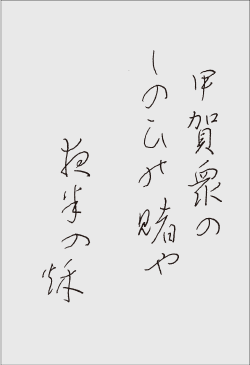 甲賀衆の
しのびの賭や
夜半の秋